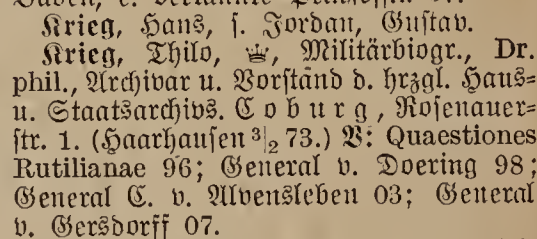 Krieg, Hans, s. Jordan, Gustav.
Krieg, Thilo, Militärbiogr., Dr.
phil., Archivar u. Vorständ d. hrzgl. Haus=
u. Staatsarchivs. Coburg, Rosenauer=
str. 1. (Haarhausen 3|2 73.) V: Quaestiones
Rutilianae 96; General v. Doering 98;
General C. v. Alvensleben 03; General
v. Gersdorff 07.